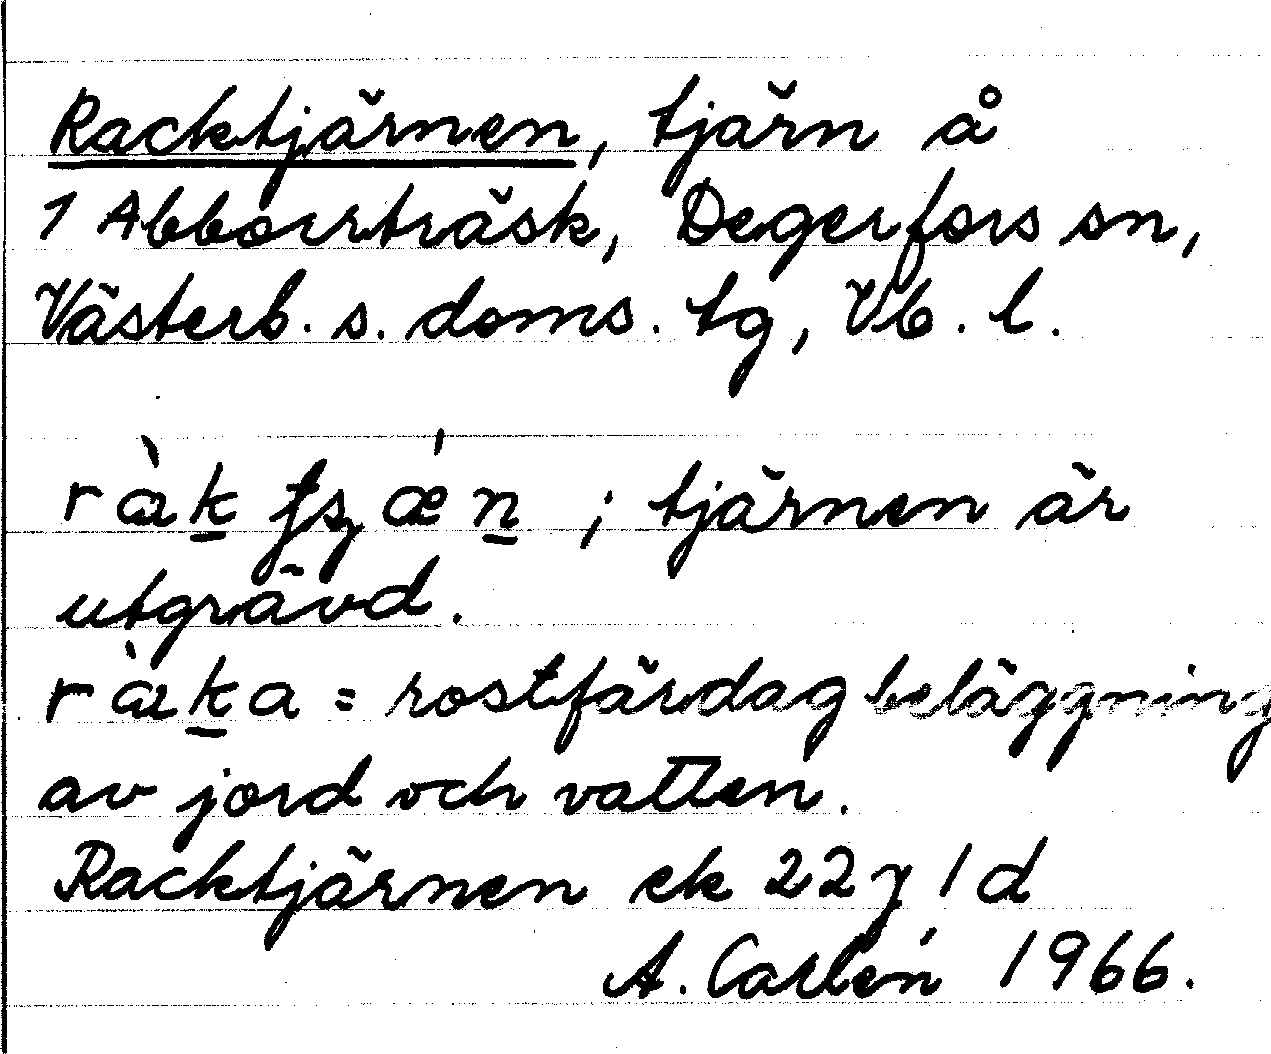 Racktjärnen, tjärn å
1 Abborrträsk, Degerfors sn,
Västerb. s. doms. tg, Vb. l.
; tjärnen är
utgrävd.
= rostfärdag beläggning
av jord och vatten.
Racktjärnen ek 22 y 1 d
A. Carlén 1966.